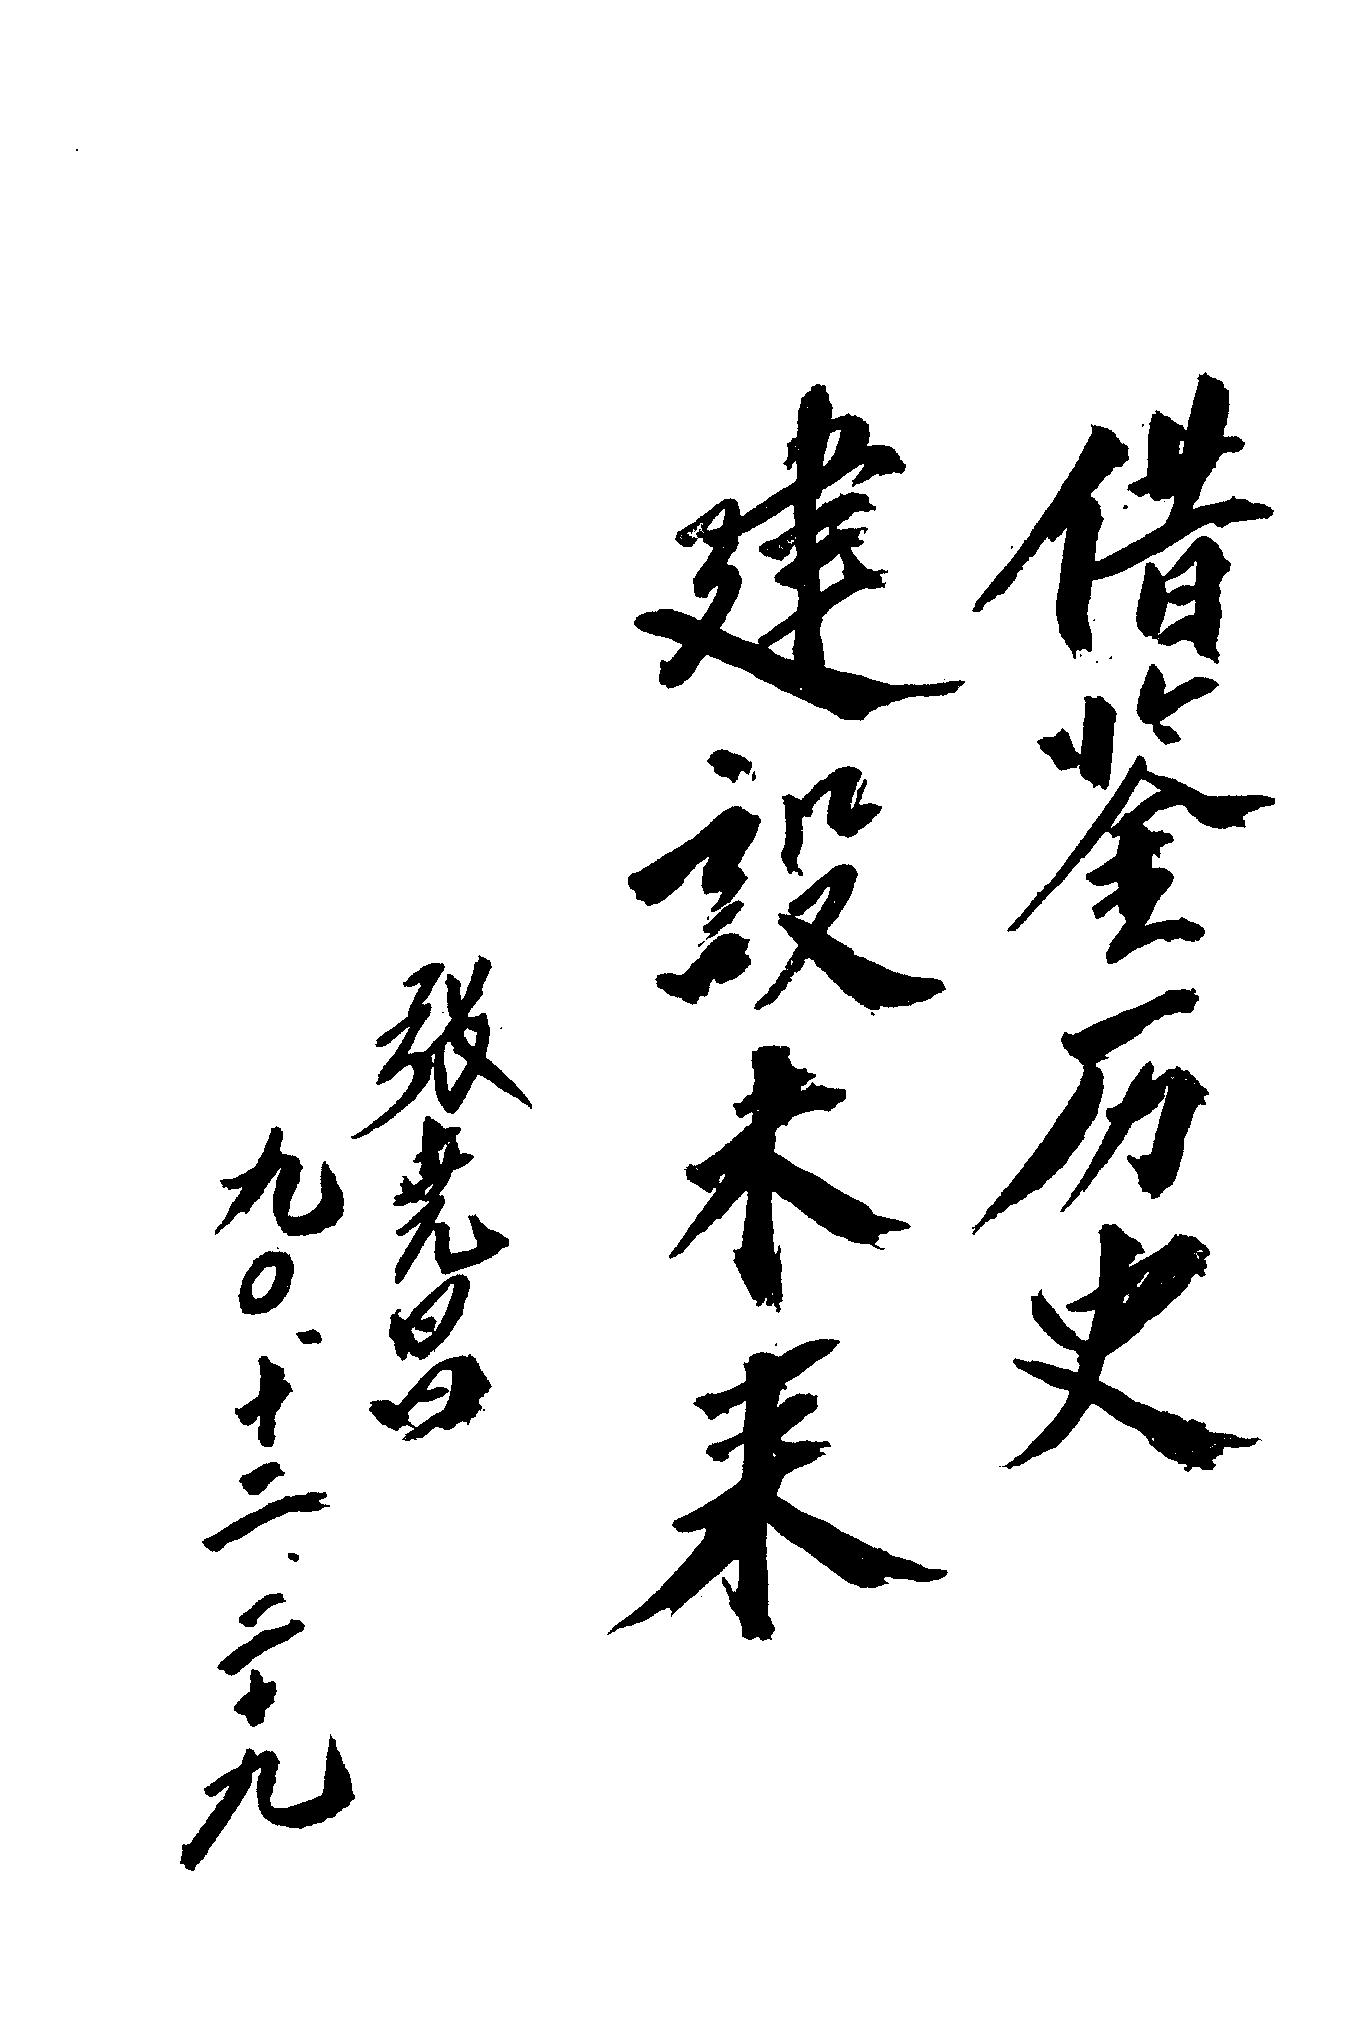 借鉴历史
建設未来
張堯昌
九〇.十二.二十九